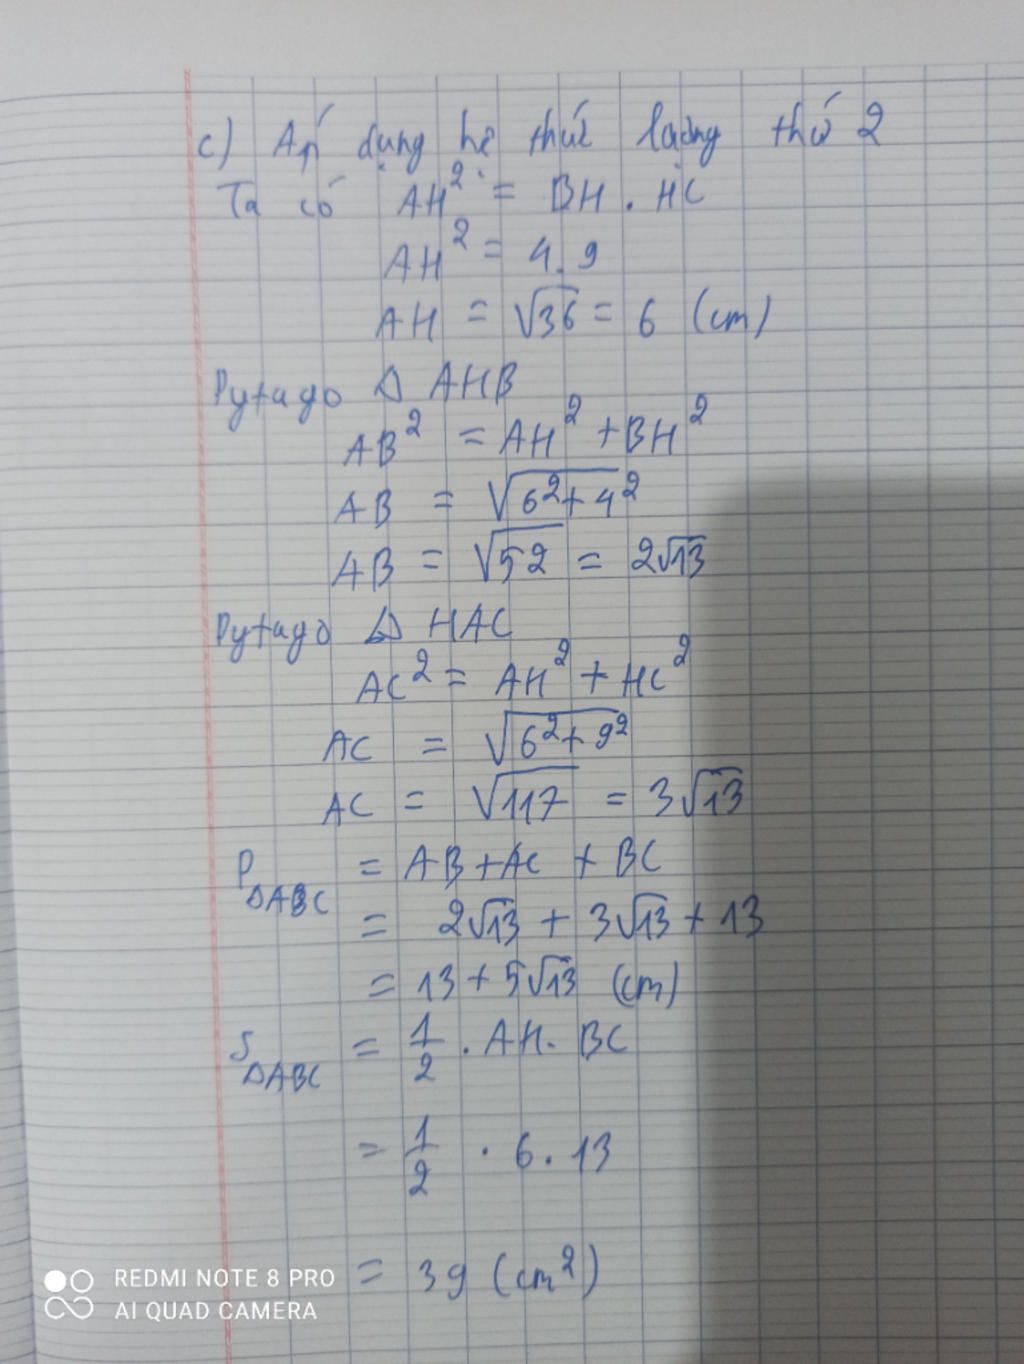 c) Áp dụng hệ thức lượng thứ 2
Ta có AH² = BH . HC
AH² = 4.9
AH = √36 = 6 (cm)
Pytago Δ AHB
AB² = AH² + BH²
AB = √6²+4²
AB = √52 = 2√13
Pytago Δ HAC
AC² = AH² + HC²
AC = √6²+9²
AC = √117 = 3√13
P ΔABC = AB + AC + BC
= 2√13 + 3√13 + 13
= 13 + 5√13 (cm)
S ΔABC = 1/2 . AH. BC
= 1/2 . 6. 13
= 39 (cm²)
REDMI NOTE 8 PRO
AI QUAD CAMERA